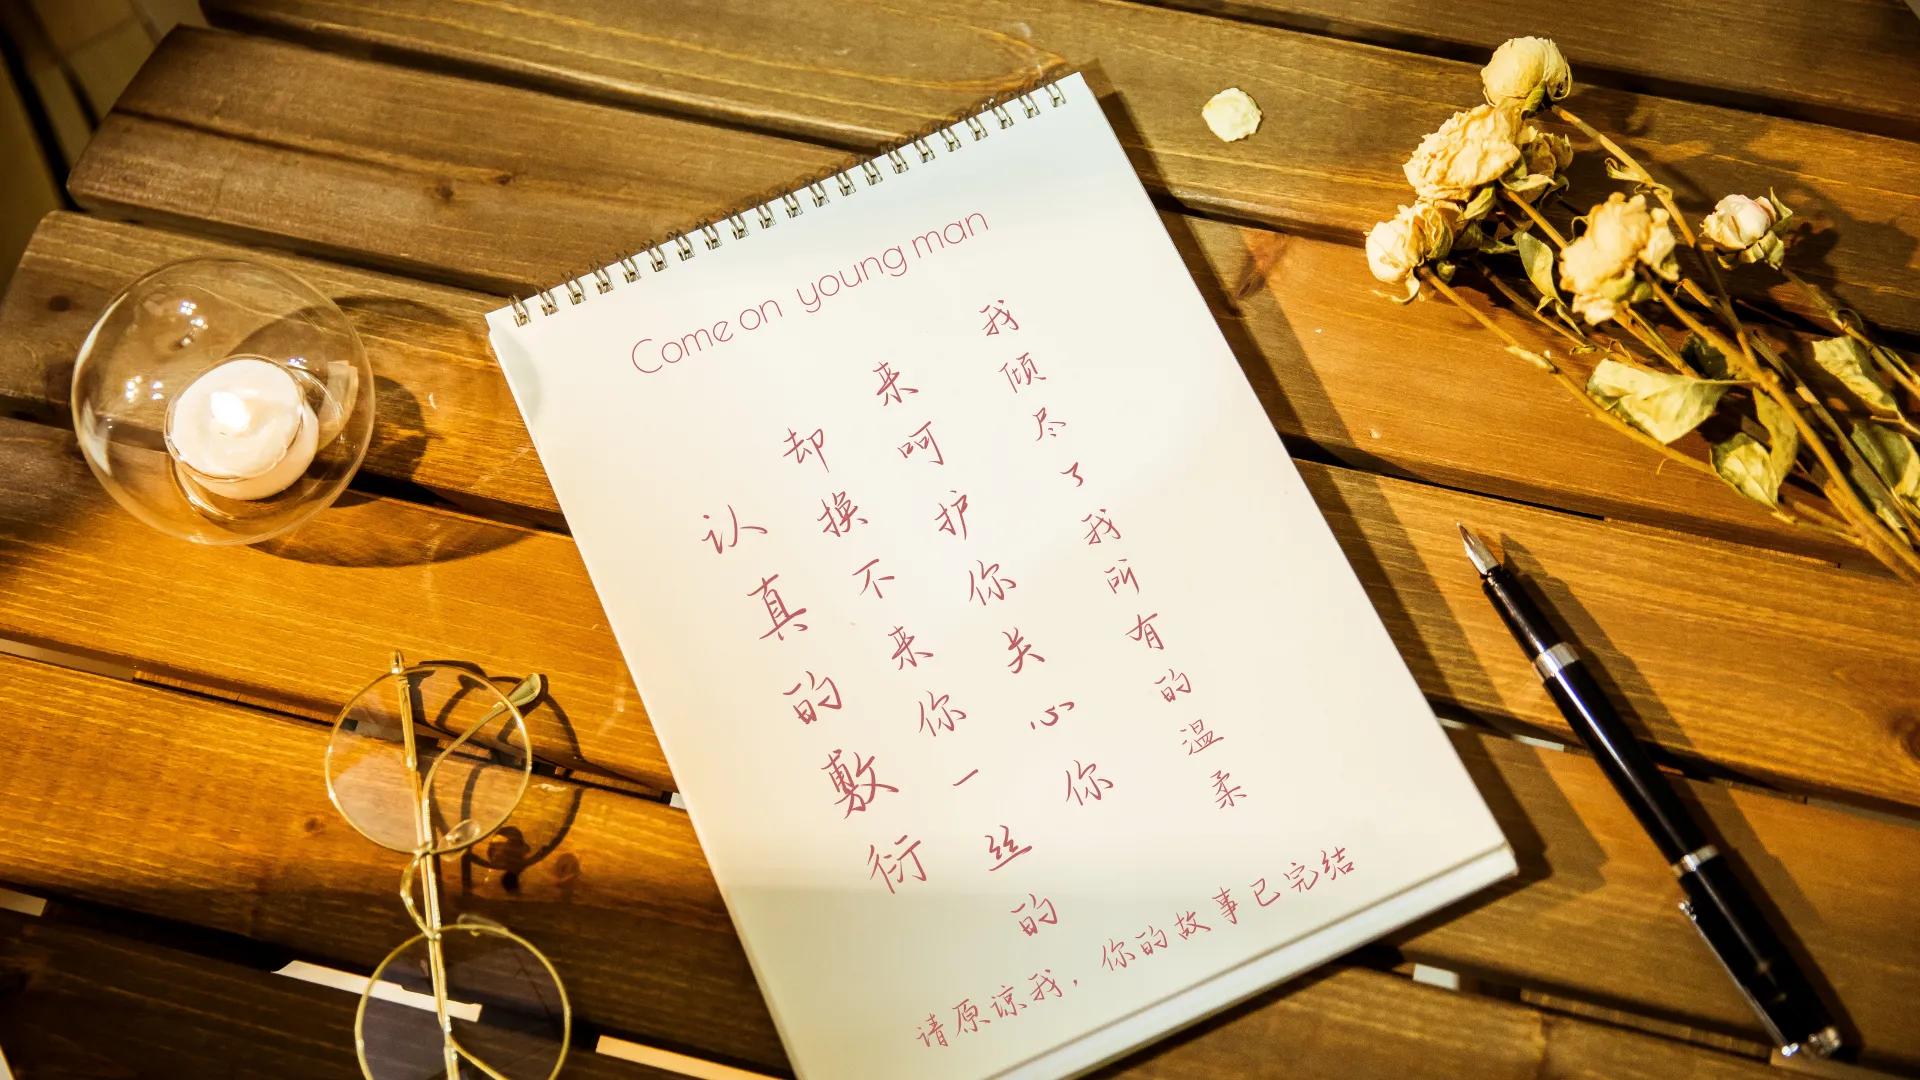 Come on young man
我倾尽了我所有的温柔
来呵护你关心你
却换不来你一丝的
认真的敷衍
请原谅我，你的故事已完结